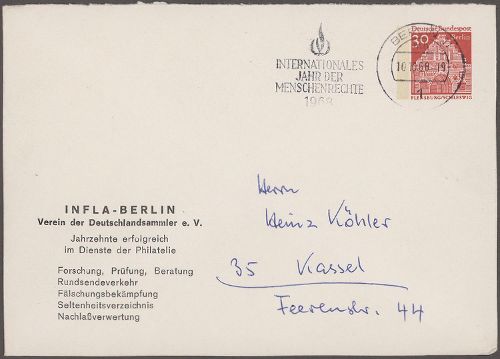 Deutsche Bundespost
30 Berlin
FLENSBURG/SCHLESWIG
BERLIN
INTERNATIONALES
JAHR DER
MENSCHENRECHTE
1968
INFLA-BERLIN
Verein der Deutschlandsammler e. V.
Jahrzehnte erfolgreich
im Dienste der Philatelie
Forschung, Prüfung, Beratung
Rundsendeverkehr
Fälschungsbekämpfung
Seltenheitsverzeichnis
Nachlaßverwertung
Herrn
Heinz Köhler
35 Kassel
Feerenstr. 44